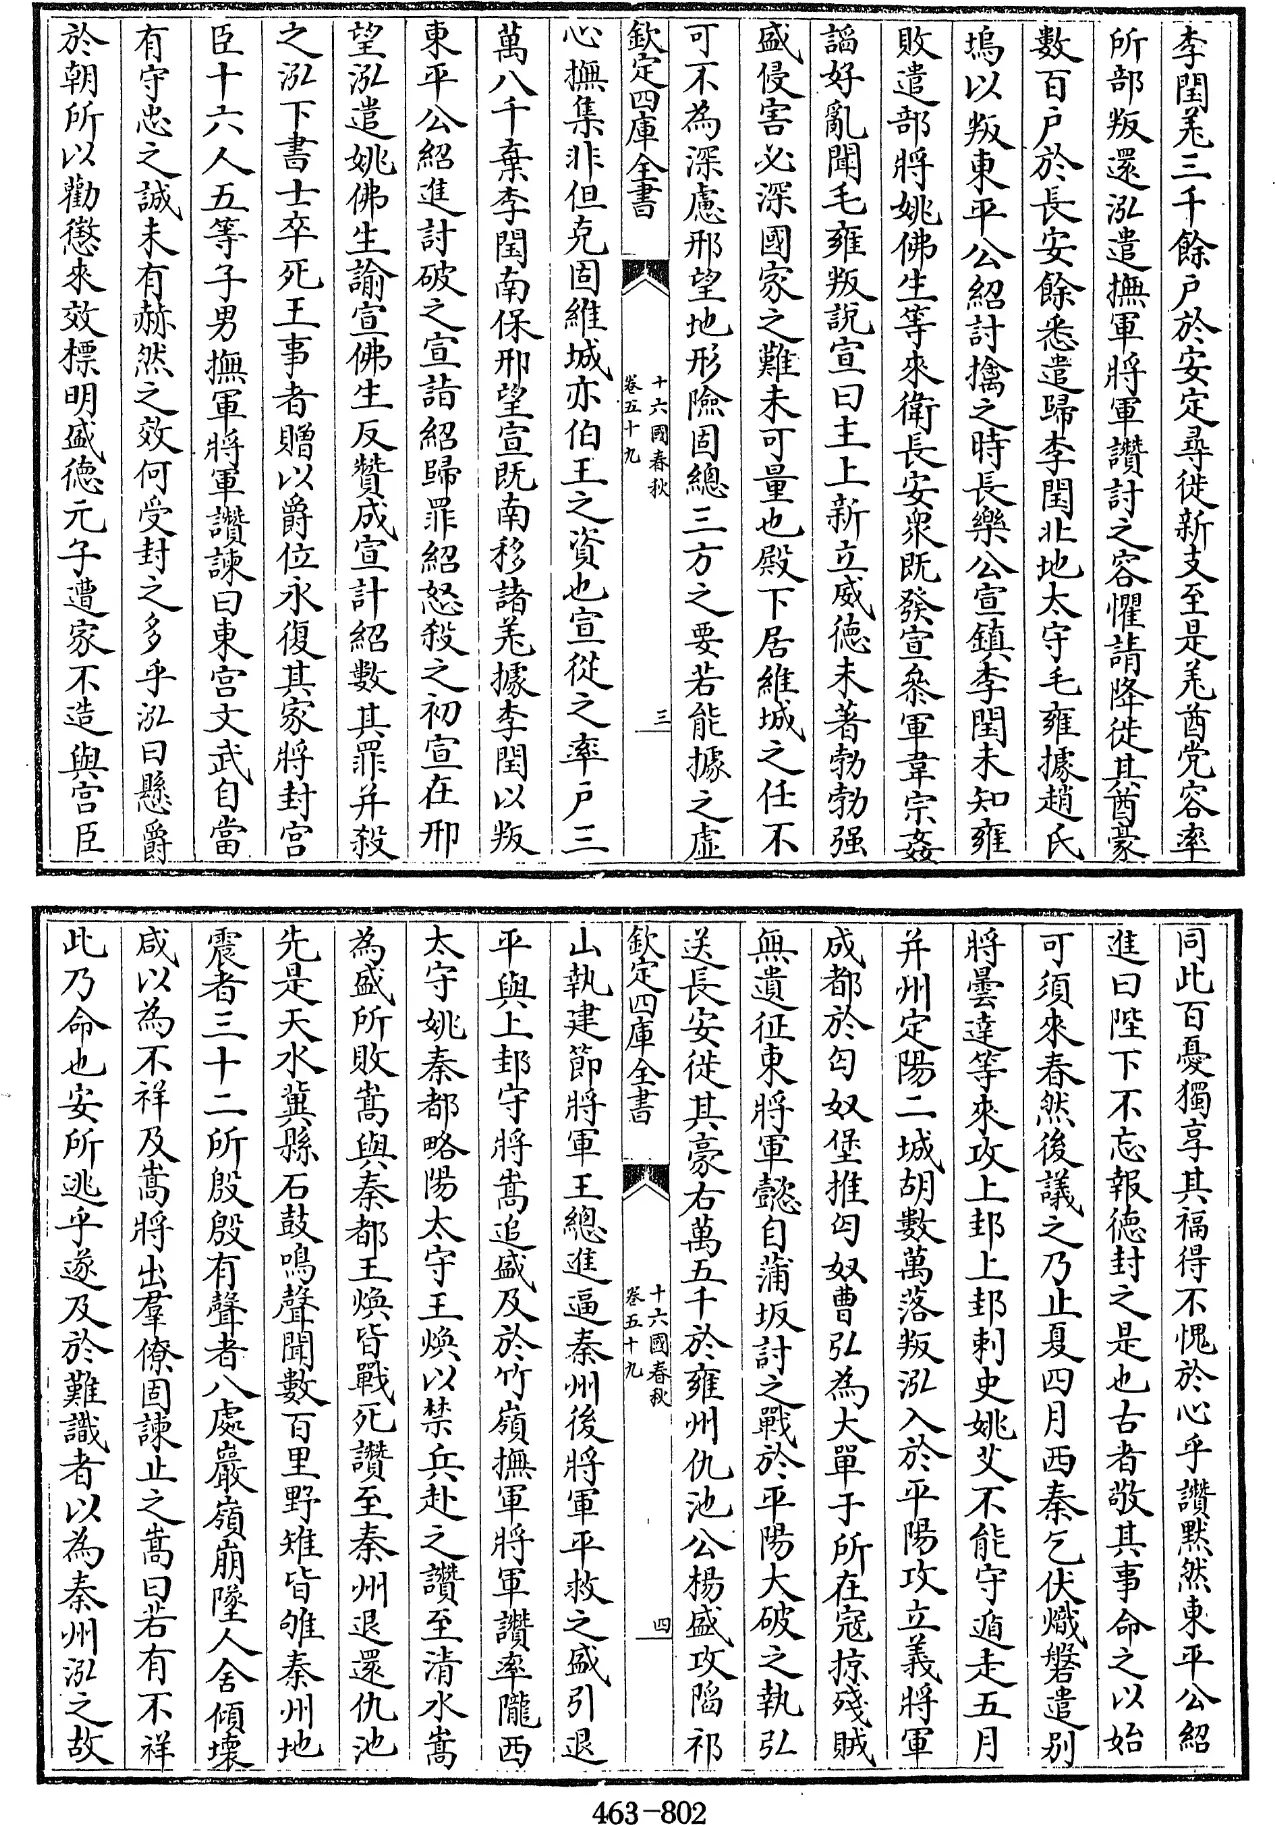 李閏羌三千餘戶於安定尋徙新支至是羌酋党容率
所部叛還泓遣撫軍將軍讃討之容懼請降徙其酋豪
數百戶於長安餘悉遣歸李閏北地太守毛雍據趙氏
塢以叛東平公紹討擒之時長樂公宣鎮李閏未知雍
敗遣部將姚佛生等來衛長安衆既發宣叅軍韋宗姦
謟好亂聞毛雍叛説宣曰主上新立威德未著勃勃强
盛侵害必深國家之難未可量也殿下居維城之任不
可不為深慮邢望地形險固總三方之要若能據之虛
欽定四庫全書
十六國春秋
卷五十九
三
心撫集非但克固維城亦伯王之資也宣從之率戶三
萬八千棄李閏南保邢望宣既南移諸羌據李閏以叛
東平公紹進討破之宣詣紹歸罪紹怒殺之初宣在邢
望泓遣姚佛生諭宣佛生反贊成宣計紹數其罪并殺
之泓下書士卒死王事者贈以爵位永復其家將封宮
臣十六人五等子男撫軍將軍讃諫曰東宮文武自當
有守忠之誠未有赫然之效何受封之多乎泓曰懸爵
於朝所以勸懲來效標明盛德元子遭家不造與宮臣
同此百憂獨享其福得不愧於心乎讃黙然東平公紹
進曰陛下不忘報德封之是也古者敬其事命之以始
可須來春然後議之乃止夏四月西秦乞伏熾磐遣别
將曇達等來攻上邽上邽刺史姚艾不能守遁走五月
并州定陽二城胡數萬落叛泓入於平陽攻立義將軍
成都於匈奴堡推匈奴曹弘為大單于所在寇掠殘賊
無遺征東將軍懿自蒲坂討之戰於平陽大破之執弘
送長安徙其豪右萬五千於雍州仇池公楊盛攻陷祁
欽定四庫全書
十六國春秋
卷五十九
四
山執建節將軍王總進逼秦州後將軍平救之盛引退
平與上邽守將嵩追盛及於竹嶺撫軍將軍讃率隴西
太守姚秦都略陽太守王煥以禁兵赴之讃至清水嵩
為盛所敗嵩與秦都王煥皆戰死讃至秦州退還仇池
先是天水冀縣石鼓鳴聲聞數百里野雉皆雊秦州地
震者三十二所殷殷有聲者八處巖嶺崩墜人舍傾壞
咸以為不祥及嵩將出羣僚固諫止之嵩曰若有不祥
此乃命也安所逃乎遂及於難識者以為秦州泓之故
463-802